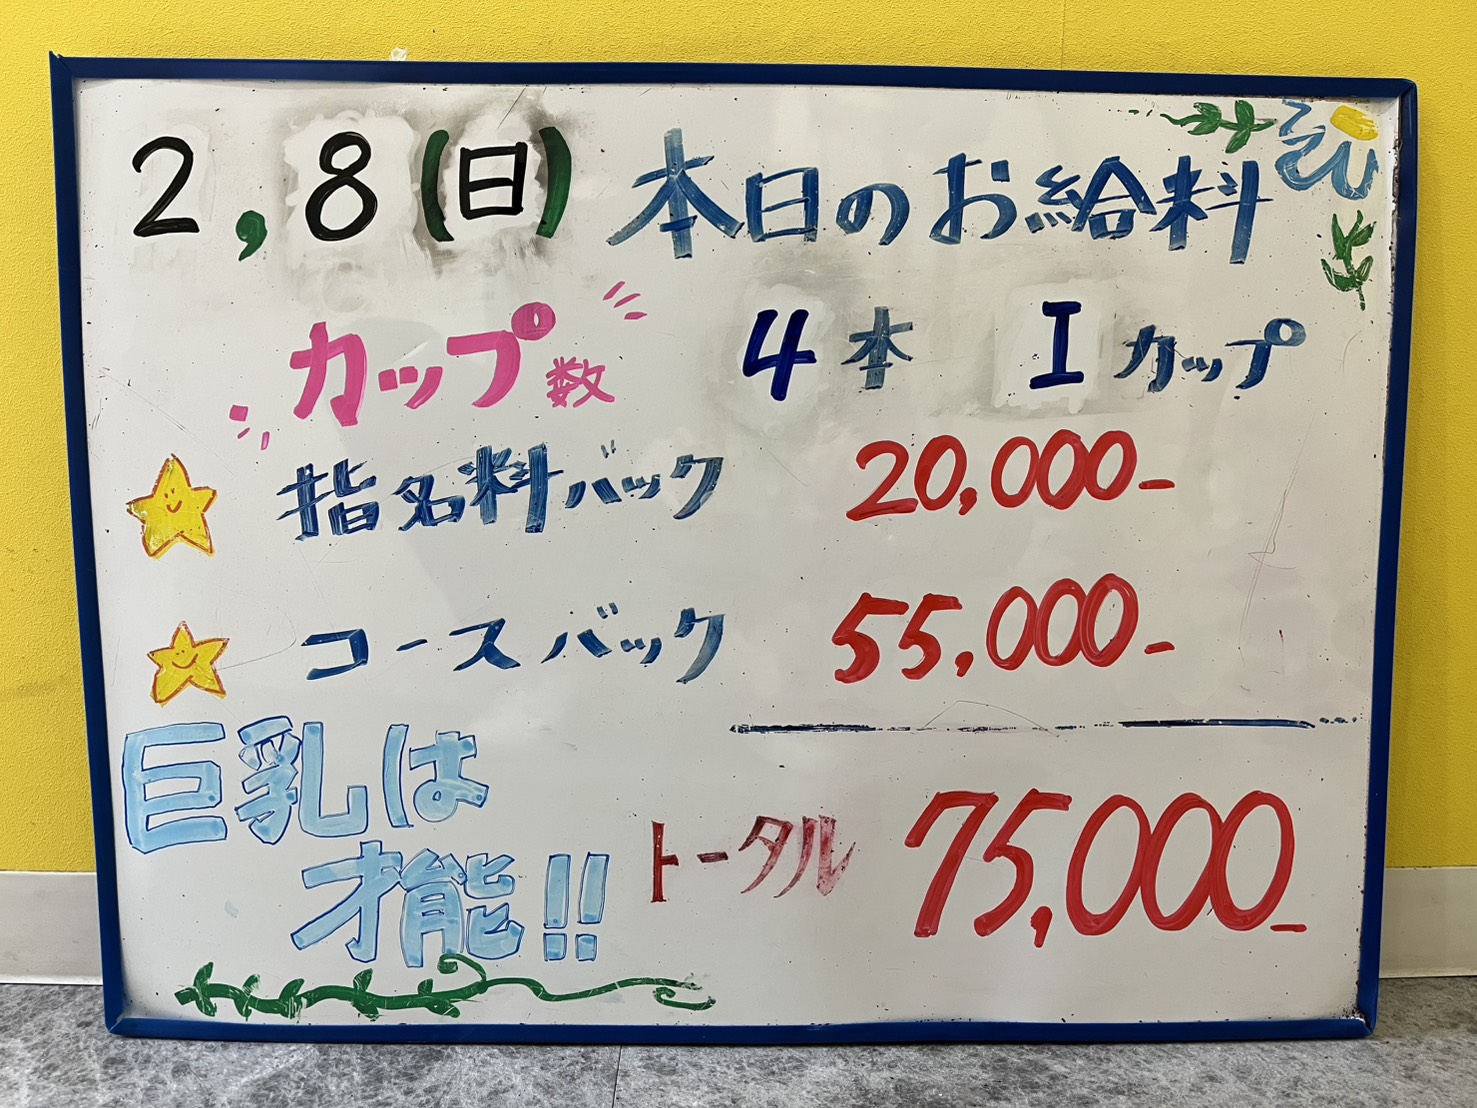 2,8(日) 本日のお給料
カップ数 4本 Iカップ
指名料バック 20,000-
コースバック 55,000-
巨乳は
才能!!
トータル 75,000-